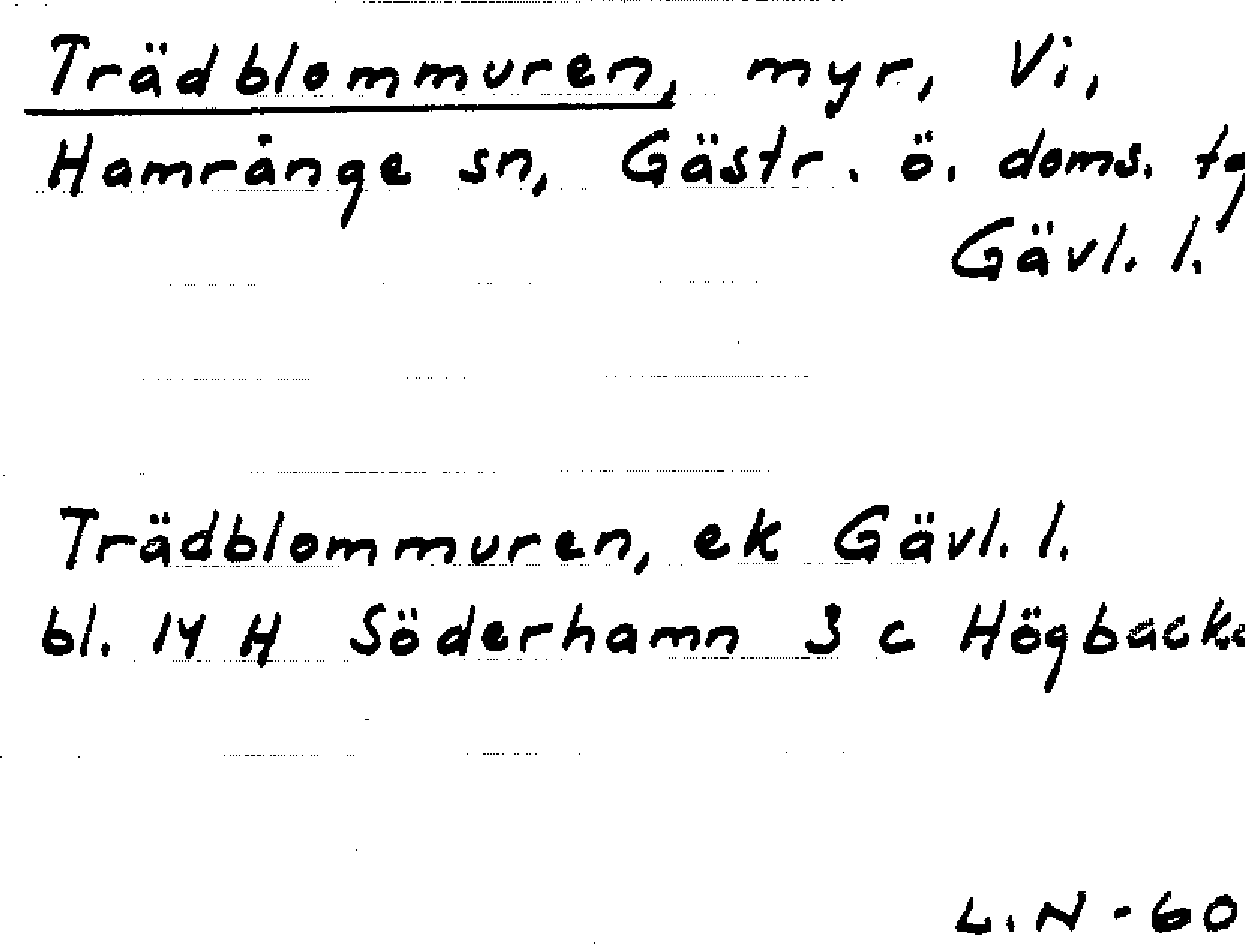 Trädblommuren, myr, Vi,
Hamrånge sn, Gästr. ö. doms. tg
Gävl. l.
Trädblommuren, ek Gävl. l.
bl. 14 H Söderhamn 3 c Högbacka
L.N - 60